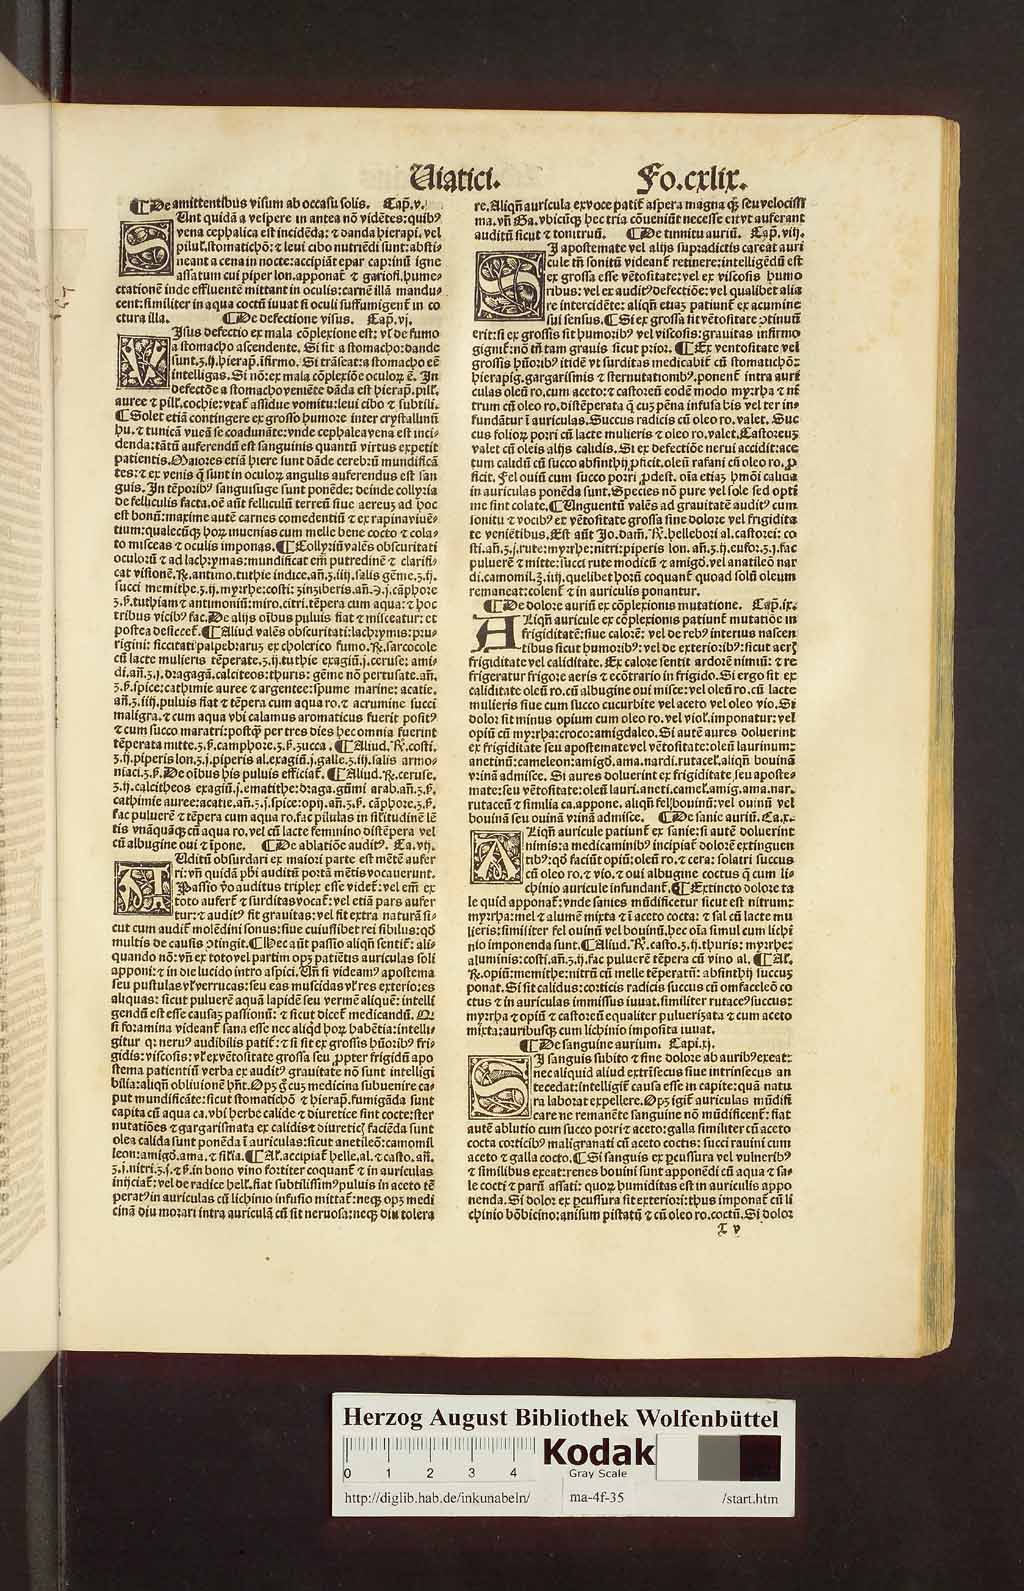 Uiatici. Fo.cxlix.
¶De amittentibus visum ab occasu solis. Cap̄.v.
SUnt quidā a vespere in antea nō vidētes: quibꝰ
vena cephalica est incidēda: ⁊ danda hierapi. vel
pilul̕. stomatichō: ⁊ leui cibo nutriēdi sunt: absti
neant a cena in nocte: accipiāt epar capꝛinū igne
assatum cui piper lon. apponat̕ ⁊ gariofi. hume
ctationē inde effluentē mittant in oculis: carnē illā mandu
cent: similiter in aqua coctū iuuat si oculi suffumigent̕ in co
ctura illa. ¶De defectione visus. Cap̄.vj.
VIsus defectio ex mala cōplexione est: vl̕ de fumo
a stomacho ascendente. Si sit a stomacho: dande
sunt.ʒ.ij. hierap̄. īfirmo. Si trāseat: a stomacho eē
intelligas. Si nō: ex mala cōplexiōe oculoꝝ ē. In
defectōe a stomacho veniēte dāda est hierap̄. pill̕.
auree ⁊ pill̕. cochie: vtat̕ assidue vomitu: leui cibo ⁊ subtili.
¶Solet etiā contingere ex grosso humore inter crystallinū
hu. ⁊ tunicā vueā se coadunāte: vnde cephalea vena est inci
denda: tātū auferendū est sanguinis quantū virtus expetit
patientis. Maiores etiā hiere sunt dāde cerebrū mundificā
tes: ⁊ ex venis q̄ sunt in oculoꝝ angulis auferendus est san
guis. In tēporibꝰ sanguisuge sunt ponēde: deinde collyria
de felliculis facta. oē aūt felliculū terreū siue aereuꝫ ad hoc
est bonū: maxime autē carnes comedentiū ⁊ ex rapina viuē
tium: qualecūqꝫ hoꝝ inuenias cum melle bene cocto ⁊ cola
to misceas ⁊ oculis imponas. ¶Collyriū valēs obscuritati
oculorū ⁊ ad lachrymas: mundificat em̄ putredinē ⁊ clarifi
cat visionē. ℞. antimo. tuthie indice. añ.ʒ.iiij. salis gēme.ʒ.ij.
succi memithe.ʒ.ij. myrrhe: costi: zinziberis. añ.℈.j. cāphore
ʒ.ß. tuthiam ⁊ antimoniū: miro. citri. tēpera cum aqua: ⁊ hoc
tribus vicibꝰ fac. De alijs oībus puluis fiat ⁊ misceatur: et
postea desiccet̕. ¶Aliud valēs obscuritati: lachrymis: pru
rigini: siccitati palpebraruꝫ ex cholerico fumo. ℞. sarcocole
cū lacte mulieris tēperate.ʒ.ij. tuthie exagiū.j. ceruse: ami
di. añ.ʒ.j. dragagā. calciteos: thuris: gēme nō pertusate. añ.
ʒ.ß. spice: cathimie auree ⁊ argentee: spume marine: acatie.
añ.ʒ.iiij. puluis fiat ⁊ tēpera cum aqua ro. ⁊ acrumine succi
maligra. ⁊ cum aqua vbi calamus aromaticus fuerit positꝰ
⁊ cum succo maratri: postqꝫ per tres dies hec omnia fuerint
tēperata mitte.ʒ.ß. camphore.ʒ.ß. zucca. ¶Aliud. ℞. costi.
ʒ.ij. piperis lon.ʒ.j. piperis al. exagiū.j. galle.ʒ.iij. salis armo
niaci.ʒ.ß. De oībus his puluis efficiat̕. ¶Aliud. ℞. ceruse.
ʒ.ij. calcitheos exagiū.j. ematithe: draga. gūmi arab. añ.ʒ.ß.
cathimie auree: acatie. añ.ʒ.j. spice: opij. añ.ʒ.ß. cāphore.ʒ.ß.
fac puluerē ⁊ tēpera cum aqua ro. fac pilulas in sil̕itudinē lē
tis vnāquāqꝫ cū aqua ro. vel cū lacte feminino distēpera vel
cū albugine oui ⁊ īpone. ¶De ablatiōe auditꝰ. Ca.vij.
AUditū obsurdari ex maiori parte est mētē aufer
ri: vn̄ quidā phi auditū portā mētis vocauerunt.
Passio vō auditus triplex esse videt̕: vel em̄ ex
toto aufert̕ ⁊ surditas vocat̕: vel etiā pars aufer
tur: ⁊ auditꝰ sit grauitas: vel sit extra naturā si
cut cum audit̕ molēdini sonus: siue cuiuslibet rei sibilus: qd̕
multis de causis ɔtingit. ¶Hec aūt passio aliqn̄ sentit̕: ali
quando nō: vn̄ ex toto vel partim opꝫ patiētis auriculas soli
apponi: ⁊ in die lucido intro aspici. Un̄ si videamꝰ apostema
seu pustulas vl̕ verrucas: seu eas muscidas vl̕ res exteriores
aliquas: sicut puluerē aquā lapidē seu vermē aliquē: intelli
gendū est esse causaꝫ passionū: ⁊ sicut dicet̕ medicandū. Qꝛ
si foramina videant̕ sana esse nec aliqd̕ hoꝝ habētia: intelli
gitur qꝛ neruꝰ audibilis patit̕: ⁊ si sit ex grossis hūoribꝰ fri
gidis: viscosis: vl̕ ex vētositate grossa seu ꝓpter frigidū apo
stema patientiū verba ex auditꝰ grauitate nō sunt intelligi
bilia: aliqn̄ obliuionē hn̄t. Opꝫ g̊ cuꝫ medicina subuenire ca
put mundificāte: sicut stomachō ⁊ hierap̄. fumigāda sunt
capita cū aqua ca. vbi herbe calide ⁊ diuretice sint cocte: ster
nutatiōes ⁊ gargarismata ex calidis ⁊ diureticꝭ faciēda sunt
olea calida sunt ponēda ī auriculas: sicut anetileō: camomil
leon: amigdo. ama. ⁊ sil̕ia. ¶Al̕. accipiat̕ helle. al. ⁊ casto. añ.
ʒ.j. nitri.ʒ.j. ⁊ ß. in bono vino fortiter coquant̕ ⁊ in auriculas
inijciat̕: vel de radice hell̕. fiat subtilissimꝰ puluis in aceto tē
peratꝰ in auriculas cū lichinio infusio mittat̕: neqꝫ opꝫ medi
cinā diu morari intra auriculā cū sit neruosa: neqꝫ diu tolera
re. Aliqn̄ auricula ex voce patit̕ aspera magna qꝫ seu velocissi
ma. vn̄ Ga. vbicūqꝫ hec tria cōueniūt necesse erit vt auferant
auditū sicut ⁊ tonitruū. ¶De tinnitu auriū. Cap̄.viij.
SI apostemate vel alijs supradictis careat auri
cule tn̄ sonitū videant̕ retinere: intelligēdū est
ex grossa esse vētositate: vel ex viscosis humo
ribus: vel ex auditꝰ defectiōe: vel qualibet alia
re intercidēte: aliqn̄ etiaꝫ patiunt̕ ex acumine
sui sensus. ¶Si ex grossa sit vētositate ɔtinuū
erit: si ex grossis sit humoribꝰ vel viscosis: grauitas infirmo
gignit̕: nō tn̄ tam grauis sicut prior. ¶Ex ventositate vel
grossis hūoribꝰ itidē vt surditas medicabit̕ cū stomatichō:
hierapig. gargarismis ⁊ sternutationibꝰ. ponent̕ intra auri
culas oleū ro. cum aceto: ⁊ castoreū eodē modo myrrha ⁊ ni
trum cū oleo ro. distēperata q̄ cuꝫ pēna infusa bis vel ter in
fundātur ī auriculas. Succus radicis cū oleo ro. valet. Suc
cus folioꝝ porri cū lacte mulieris ⁊ oleo ro. valet. Castoreuꝫ
valet cū oleis alijs calidis. Si ex defectiōe nerui accidit: ace
tum calidū cū succo absinthij ꝓficit. oleū rafani cū oleo ro. ꝓ
ficit. Fel ouiū cum succo porri ꝓdest. oīa etiaꝫ hmōi calida
in auriculas ponēda sunt. Species nō pure vel sole sed opti
me sint colate. ¶Unguentū valēs ad grauitatē auditꝰ cum
sonitu ⁊ vocibꝰ ex vētositate grossa sine dolore vel frigidita
te venietibus. Est aūt Jo. dam̄. ℞. hellebori al. castorei: co
sti. añ.ʒ.j. rute: myrrhe: nitri: piperis lon. añ.ʒ.ij. eufor.ʒ.j. fac
puluerē ⁊ mitte: succi rute modicū ⁊ amigd. vel anatileō nar
di. camomil.ʒ.iiij. quelibet horū coquant̕ quoad solū oleum
remaneat: colent̕ ⁊ in auriculis ponantur.
¶De dolore auriū ex cōplexionis mutatione. Cap̄.ix.
ALiqn̄ auricule ex cōplexionis patiunt̕ mutatiōe in
frigiditatē: siue calorē: vel de rebꝰ interius nascen
tibus sicut humoribꝰ: vel de exterioribꝰ: sicut aeris
frigiditate vel caliditate. Ex calore sentit ardorē nimiū: ⁊ re
frigeratur frigore aeris ⁊ ecōtrario in frigido. Si ergo sit ex
caliditate oleū ro. cū albugine oui misce: vel oleū ro. cū lacte
mulieris siue cum succo cucurbite vel aceto vel oleo vio. Si
dolor sit minus opium cum oleo ro. vel viol̕. imponatur: vel
opiū cū myrrha: croco: amigdaleo. Si autē aures doluerint
ex frigiditate seu apostemate vel vētositate: oleū laurinum:
anetinū: cameleon: amigd. ama. nardi. rutacel̕. aliqn̄ bouinā
vrinā admisce. Si aures doluerint ex frigiditate seu aposte
mate: seu vētositate: oleū lauri. aneti. camel̕. amig. ama. nar.
rutaceū ⁊ similia ca. appone. aliqn̄ fel bouinū: vel ouinū vel
bouinā seu ouinā vrinā admisce. ¶De sanie auriū. Ca.x.
ALiqn̄ auricule patiunt̕ ex sanie: si autē doluerint
nimis: a medicaminibꝰ incipiat̕ dolorē extinguen
tibꝰ: qd̕ faciūt opiū: oleū ro. ⁊ cera: solatri succus
cū oleo ro. ⁊ vio. ⁊ oui albugine coctus q̄ cum li
chinio auricule infundant̕. ¶Extincto dolore ta
le quid apponat̕: vnde sanies mūdificetur sicut est nitrum:
myrrha: mel ⁊ alumē mixta ⁊ ī aceto cocta: ⁊ sal cū lacte mu
lieris: similiter fel ouinū vel bouinū. hec oīa simul cum lichi
nio imponenda sunt. ¶Aliud. ℞. casto.ʒ.ij. thuris: myrrhe:
aluminis: costi. añ.ʒ.ij. fac puluerē tēpera cū vino al. ¶Al̕.
℞. opiū: memithe: nitrū cū melle tēperatū: absinthij succuꝫ
ponat. Si sit calidus: corticis radicis succus cū omfaceleō co
ctus ⁊ in auriculas immissus iuuat. similiter rutaceꝰ succus:
myrrha ⁊ opiū ⁊ castoreū equaliter puluerizata ⁊ cum aceto
mixta: auribusqꝫ cum lichinio imposita iuuat.
¶De sanguine aurium. Capi.xj.
SI sanguis subito ⁊ sine dolore ab auribꝰ exeat:
nec aliquid aliud extrīsecus siue intrinsecus an
tecedat: intelligit̕ causa esse in capite: quā natu
ra laborat expellere. Opꝫ igit̕ auriculas mūdifi
care ne remanēte sanguine nō mūdificent̕: fiat
autē ablutio cum succo porri ⁊ aceto: galla similiter cū aceto
cocta corticibꝰ maligranati cū aceto coctis: succi rauini cum
aceto ⁊ galla cocto. ¶Si sanguis ex ꝑcussura vel vulneribꝰ
⁊ similibus exeat: renes bouini sunt apponēdi cū aqua ⁊ sa
le cocti ⁊ parū assati: quoꝝ humiditas est in auriculis appo
nenda. Si dolor ex ꝑcussura sit exteriori: thus imponat̕ cū li
chinio bōbicino: anisum pistatū ⁊ cū oleo ro. coctū. Si dolor
T v
Herzog August Bibliothek Wolfenbüttel
0 1 2 3 4
Kodak
Gray Scale
http://diglib.hab.de/inkunabeln/ ma-4f-35 /start.htm